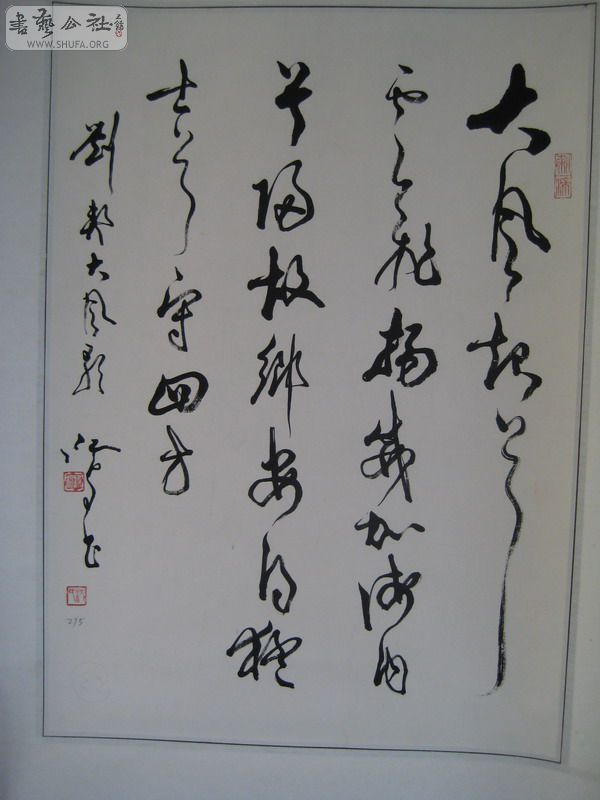 書藝公社
WWW.SHUFA.ORG
大風起兮
雲飛揚威加海内
兮歸故鄉安得猛
士兮守四方
劉邦大風歌
275